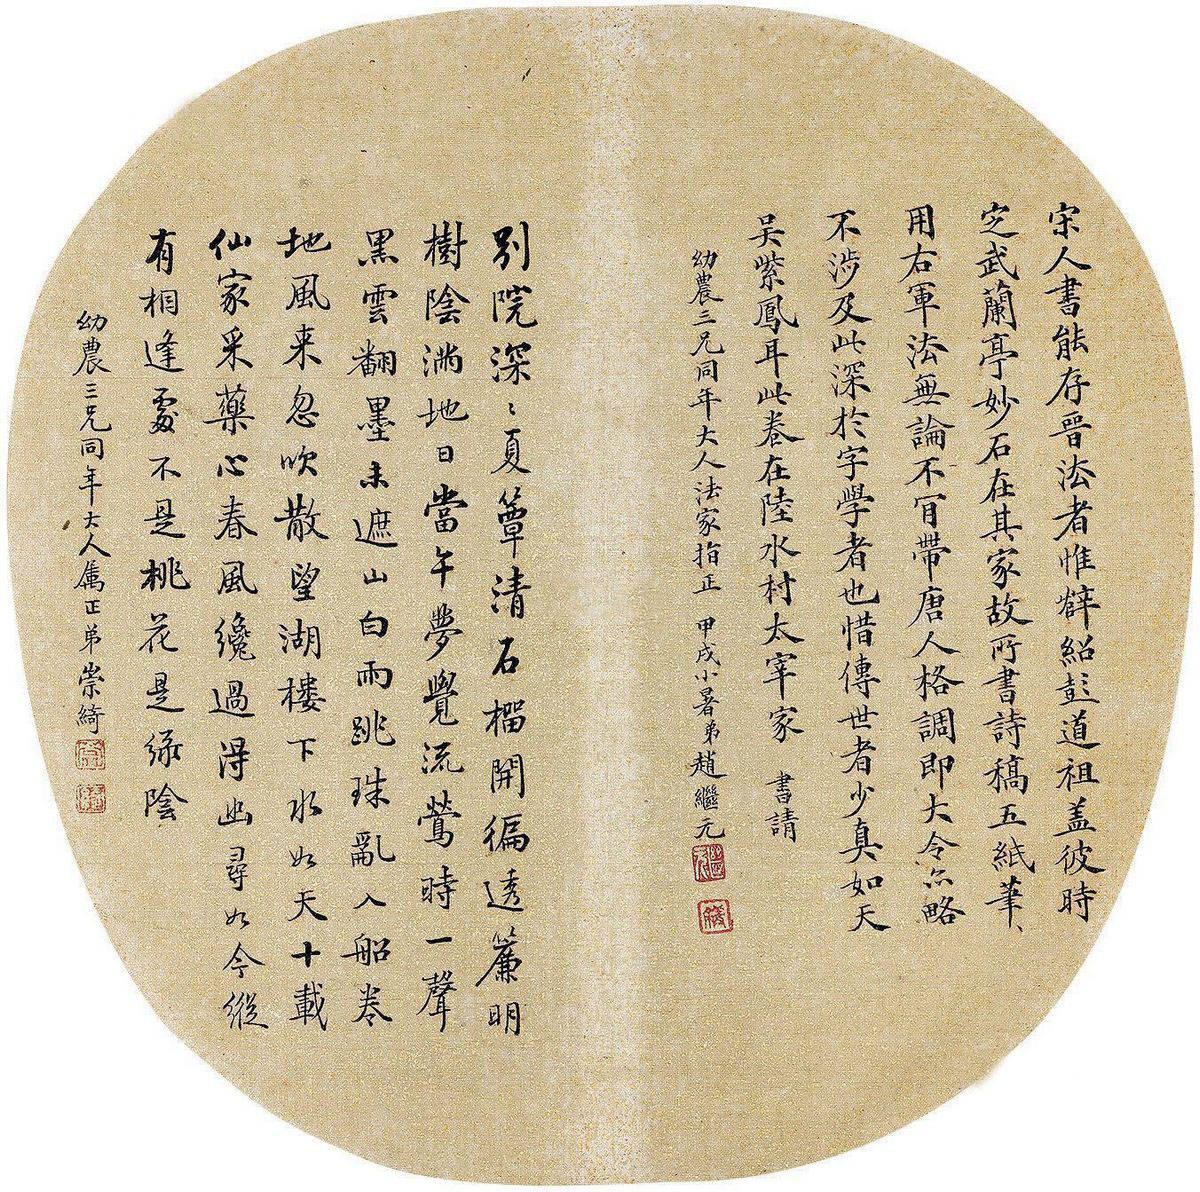 宋人書能存晉法者惟辥紹彭道祖盖彼時
定武蘭亭妙石在其家故所書詩稿五紙筆、
用右軍法無論不肎帶唐人格調即大令亦略
不涉及此深於字學者也惜傳世者少真如天
吴紫鳳耳此卷在陸水村太宰家 書請
幼農三兄同年大人法家指正 甲戌小暑弟趙繼元
別院深〻夏簟清石榴開徧透簾明
樹陰滿地日當午夢覺流鶯時一聲
黑雲翻墨未遮山白雨跳珠亂入船卷
地風来忽吹散望湖樓下水如天十載
仙家采藥心春風纔過得幽尋如今縱
有相逢處不是桃花是綠陰
幼農三兄同年大人属正弟崇綺